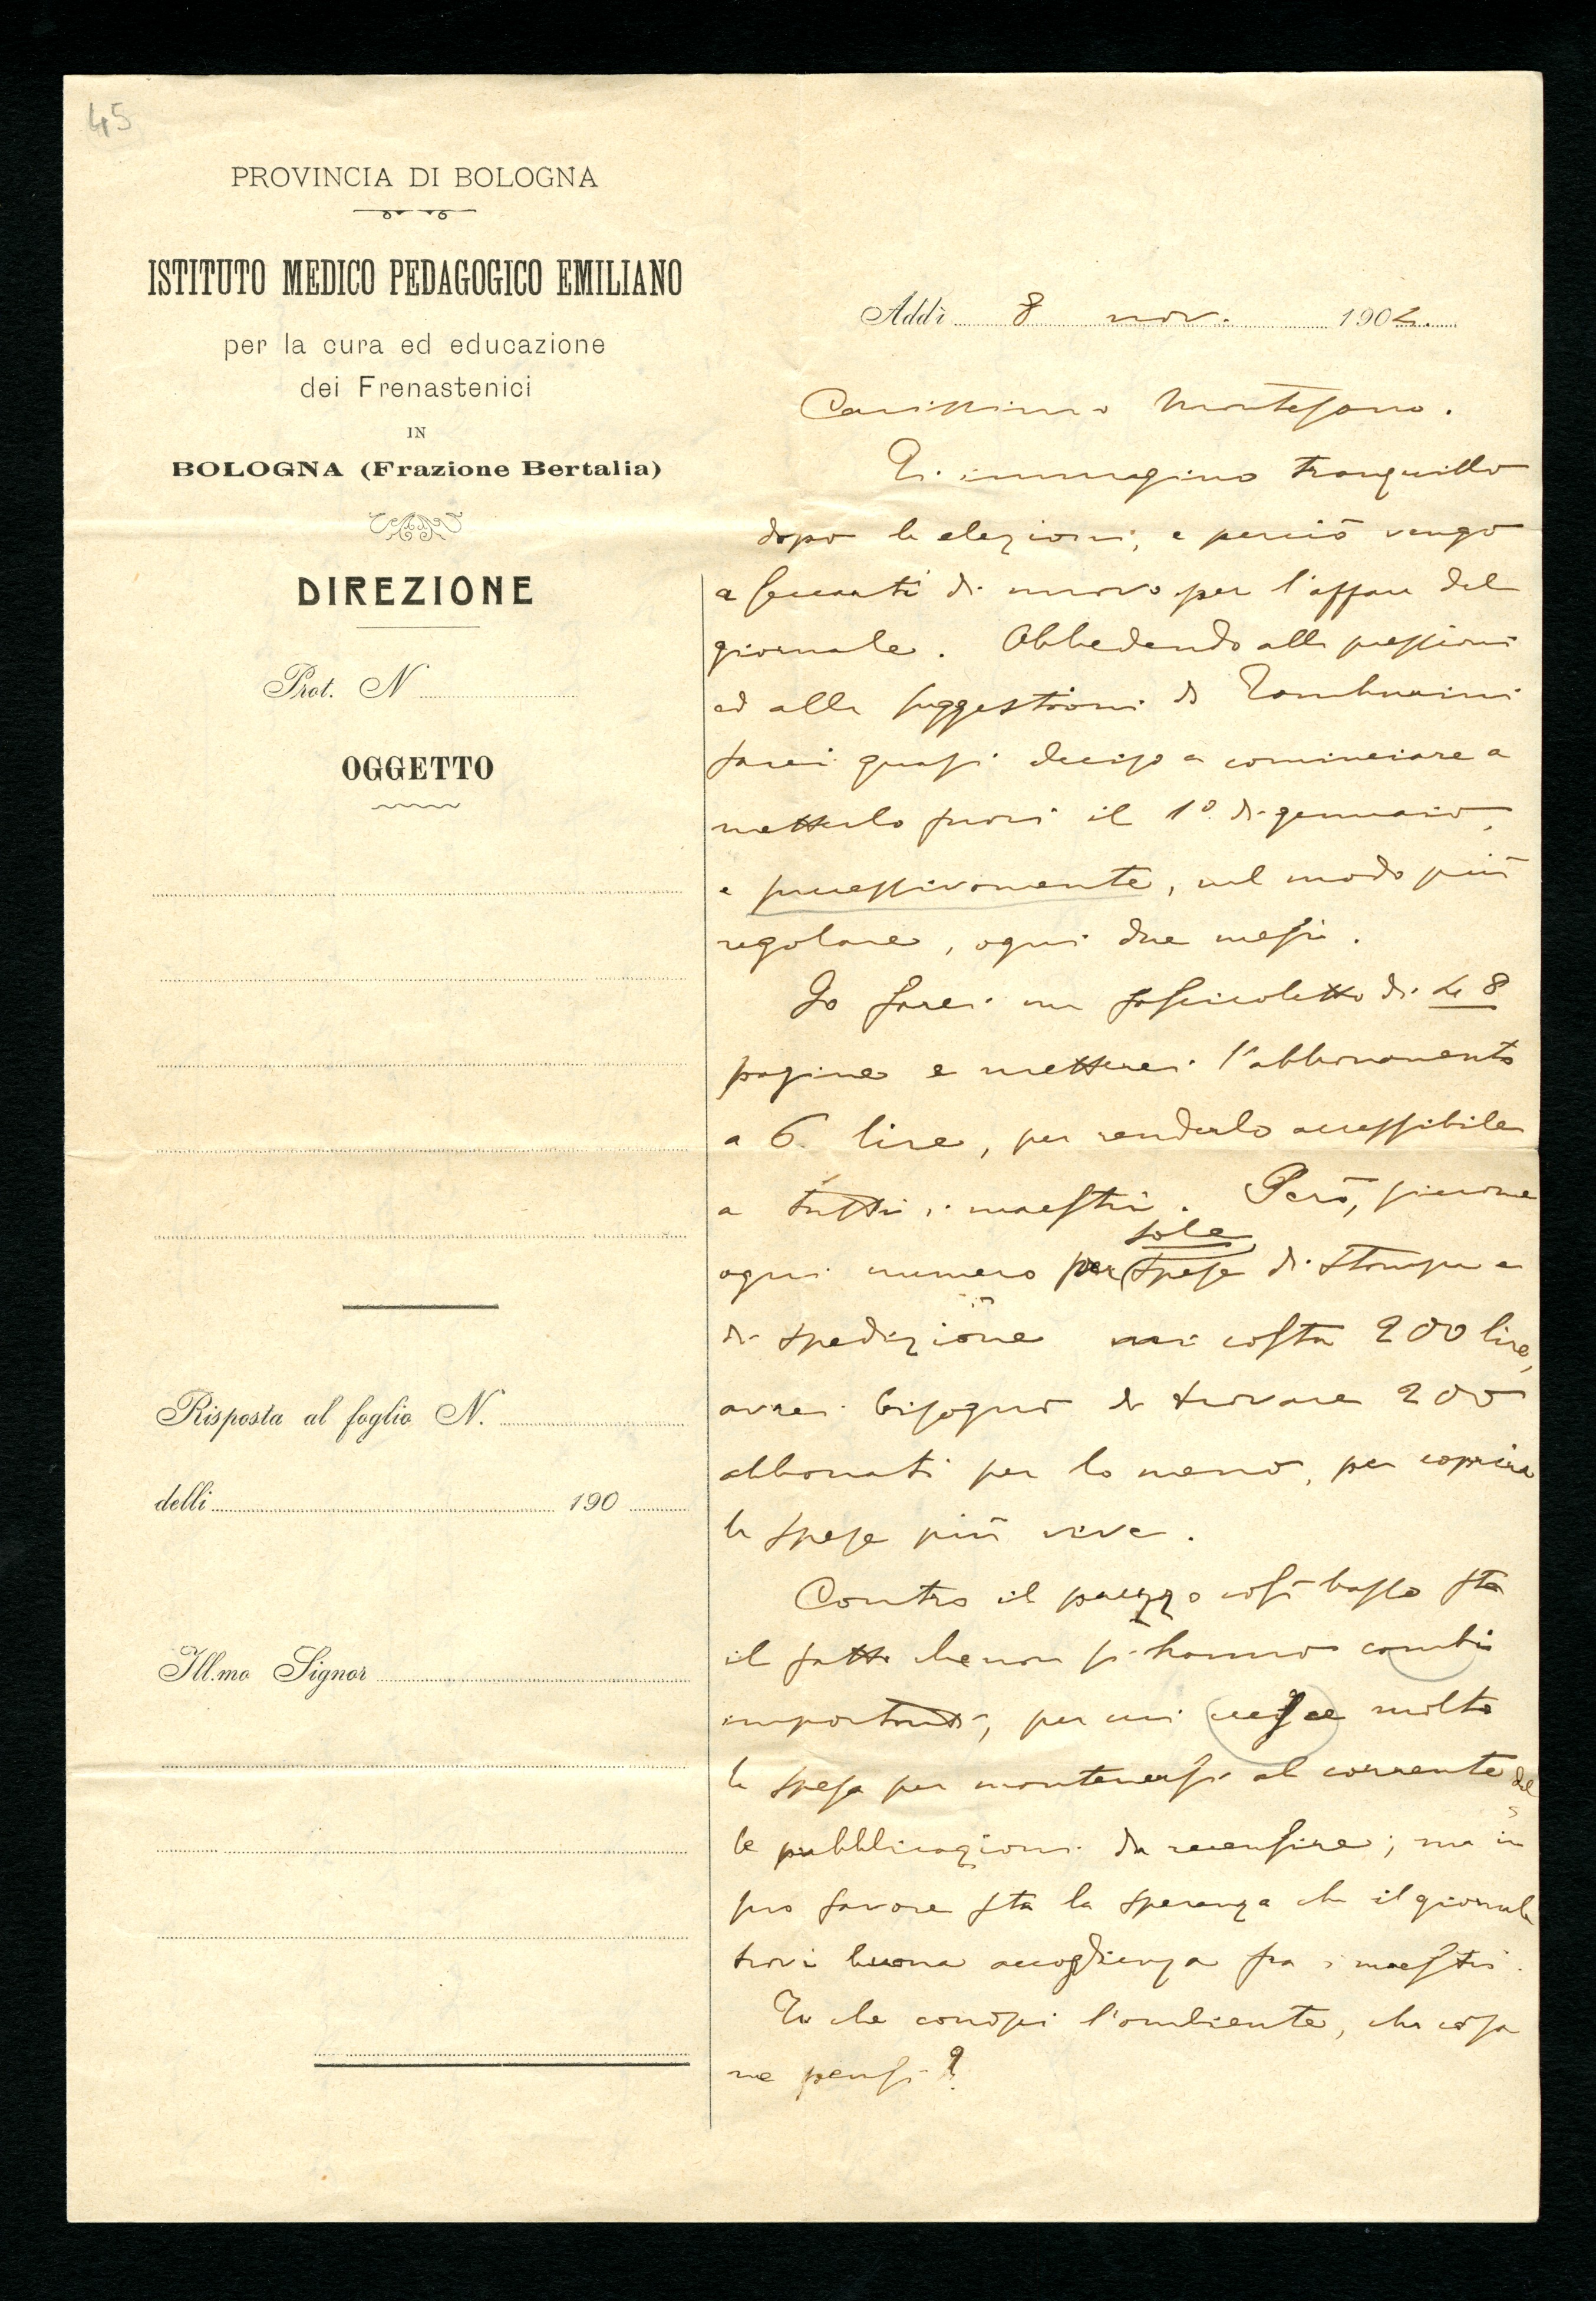 45
PROVINCIA DI BOLOGNA
ISTITUTO MEDICO PEDAGOGICO EMILIANO
per la cura ed educazione
dei Frenastenici
IN
BOLOGNA (Frazione Bertalia)
DIREZIONE
Prot. N
OGGETTO
Risposta al foglio N.
delli 190
Ill.mo Signor
Addì 8 nov. 1904.
Carissimo Montesano.
Ti immagino tranquillo
dopo le elezioni, e perciò vengo
a seccarti di nuovo per l'affare del
giornale. Obbedendo alle pressioni
ed alle suggestioni di Tamburini
sarei quasi deciso a cominciare a
metterlo fuori il 1º di gennaio,
e successivamente, nel modo più
regolare, ogni due mesi.
Io farei un fascicoletto di 48
pagine e metterei l'abbonamento
a 6 lire, per renderlo accessibile
a tutti i maestri. Però, siccome
ogni numero per sole spese di stampa e
di spedizione mi costa 200 lire,
avrei bisogno di trovare 200
abbonati per lo meno, per coprire
le spese più vive.
Contro il prezzo così basso sta
il fatto che non si hanno cambi
importanti, per cui cresce molto
la spesa per mantenersi al corrente del
le pubblicazioni da recensire; ma in
suo favore sta la speranza che il giornale
trovi buona accoglienza fra i maestri.
Tu che conosci l'ambiente, che cosa
ne pensi?